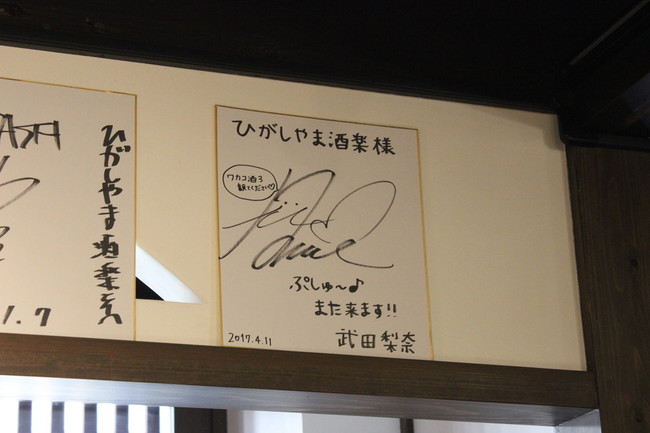 ひがしやま酒楽さんへ
1.7
ひがしやま酒楽様
ワカコ酒3
観てください♡
ぷしゅ〜♪
また来ます!!
2017.4.11
武田梨奈